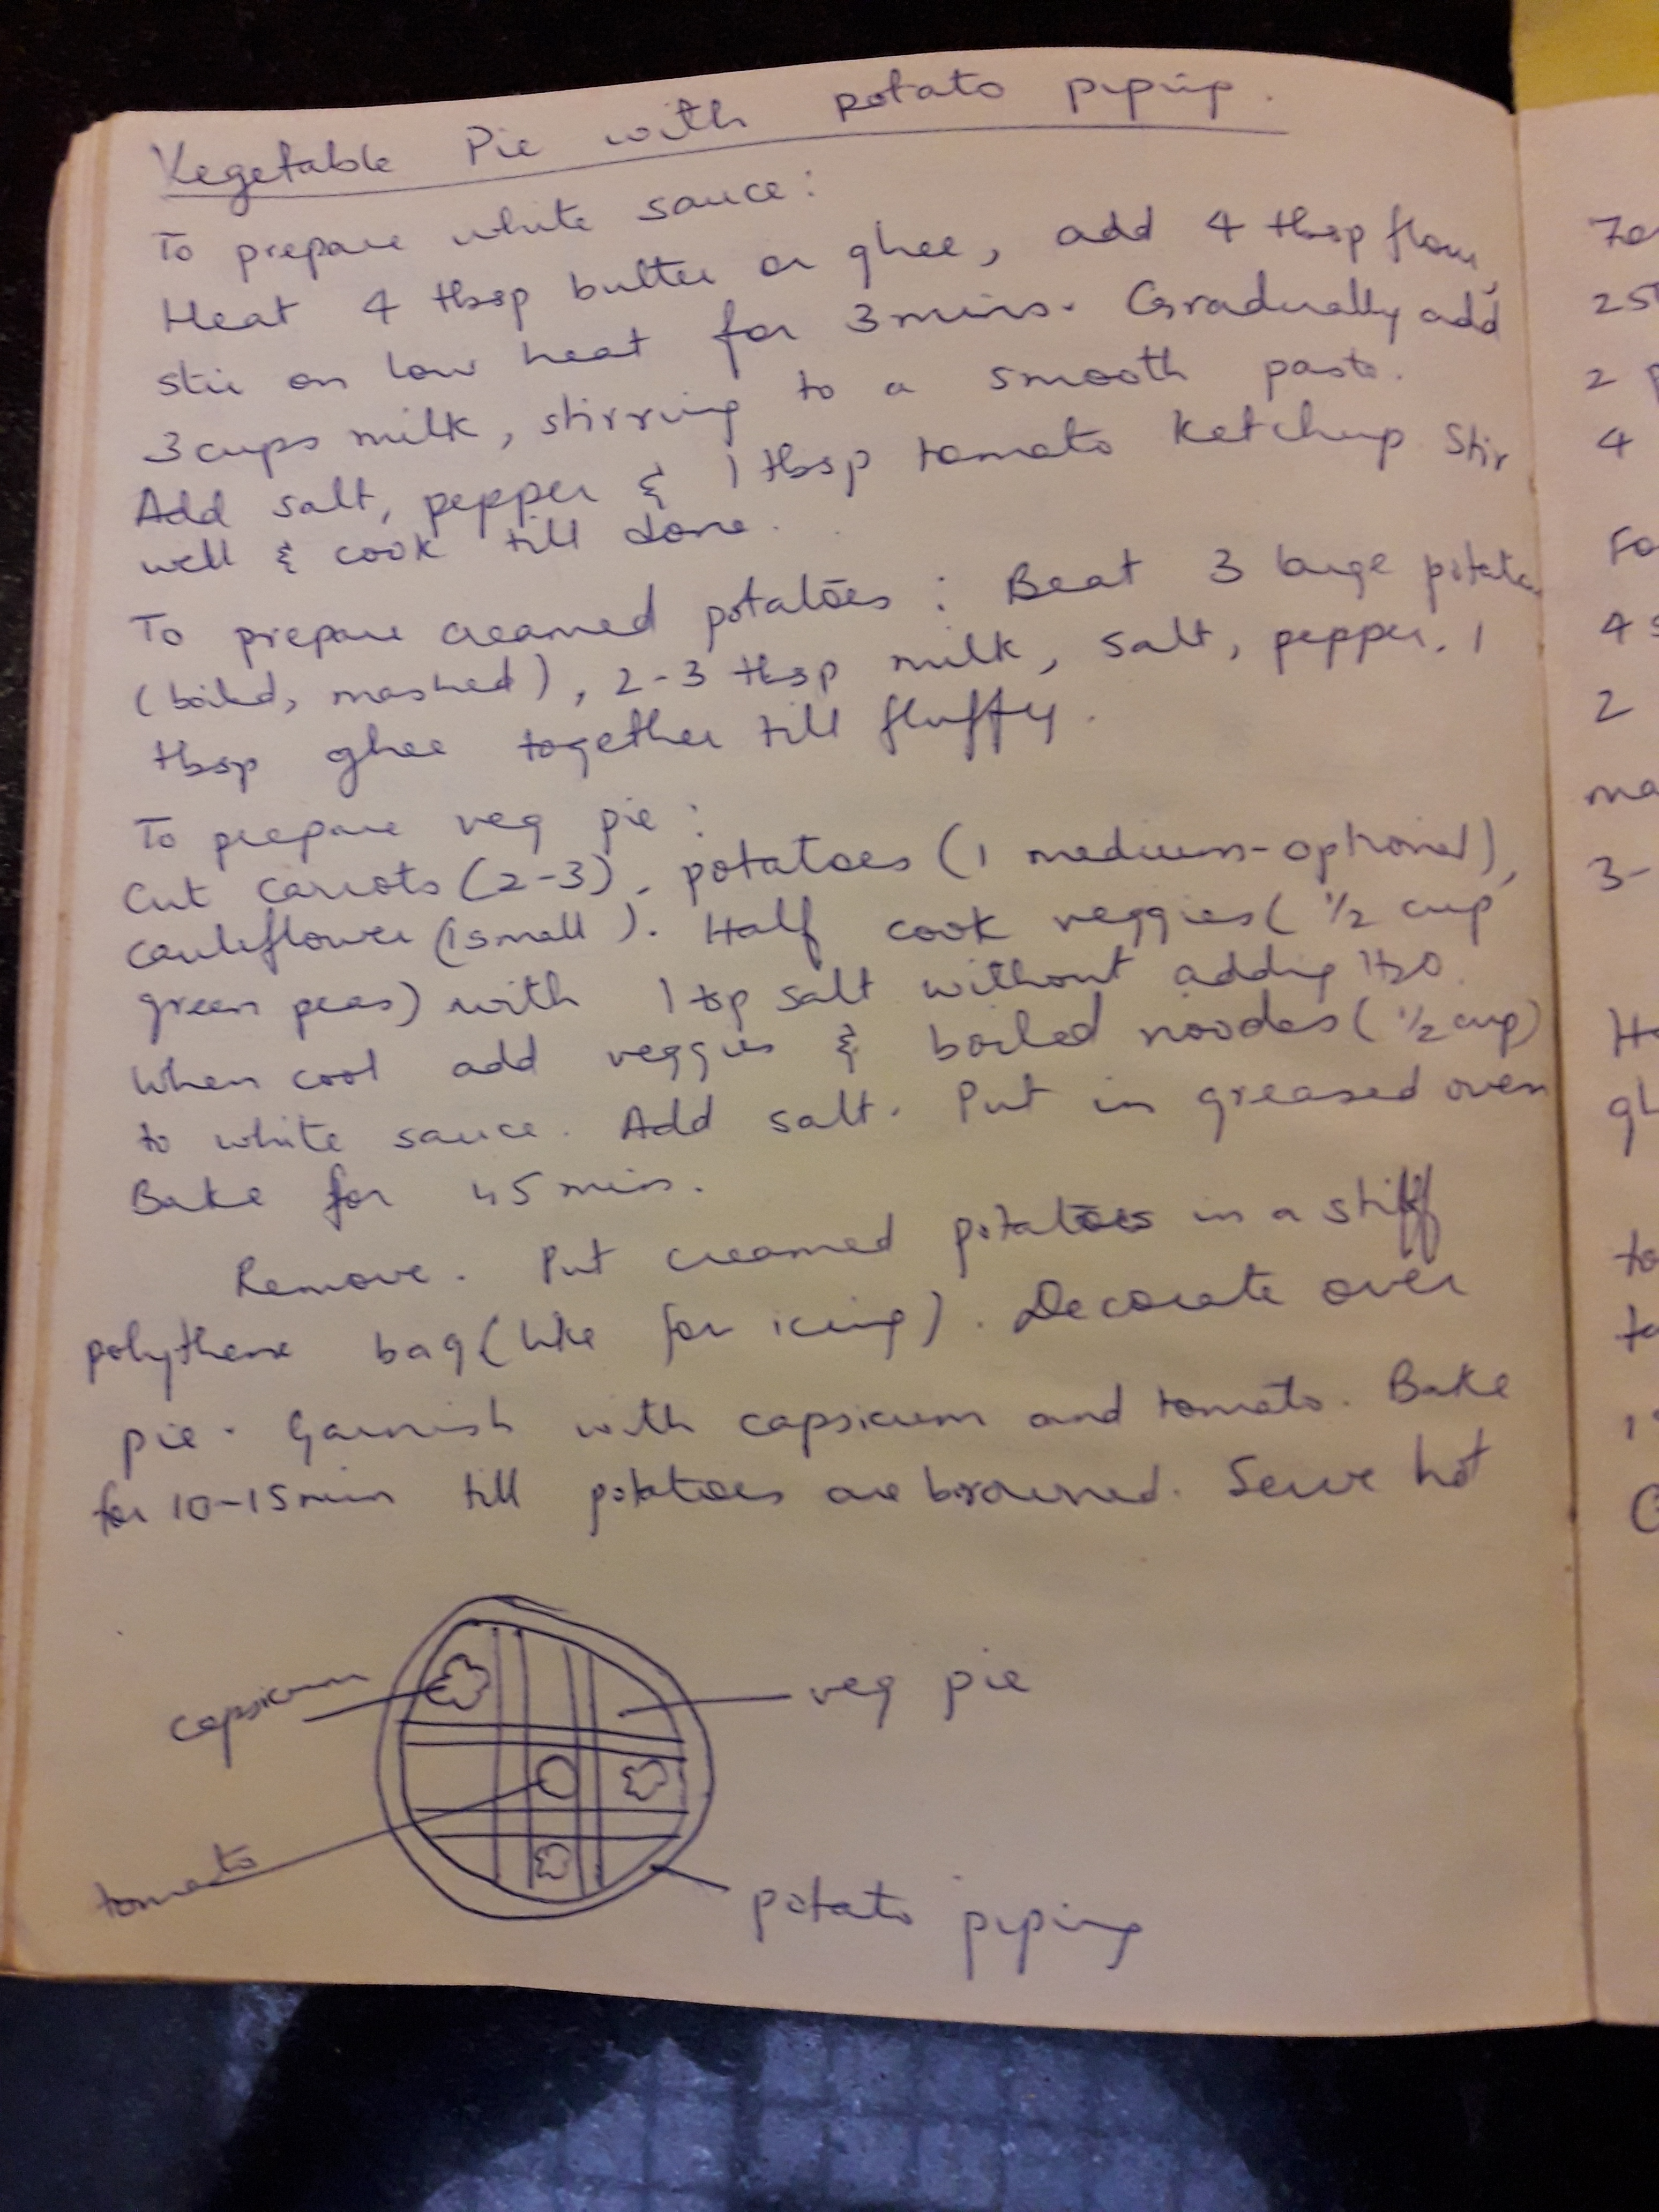 Vegetable Pie with potato piping.
To prepare white sauce:
Heat 4 tbsp butter or ghee, add 4 tbsp flour,
stir on low heat for 3 mins. Gradually add
3 cups milk, stirring to a smooth paste.
Add salt, pepper & 1 tbsp tomato ketchup Stir
well & cook till done.
To prepare creamed potatoes: Beat 3 large potato
(boiled, mashed), 2-3 tbsp milk, salt, pepper, 1
tbsp ghee together till fluffy.
To prepare veg pie:
Cut carrots (2-3), potatoes (1 medium-optional),
cauliflower (1 small). Half cook veggies (1/2 cup
green peas) with 1 tsp salt without adding H2O.
When cool add veggies & boiled noodles (1/2 cup)
to white sauce. Add salt. Put in greased oven
Bake for 45 mins.
Remove. Put creamed potatoes in a stiff
polythene bag (like for icing). Decorate over
pie. Garnish with capsicum and tomato. Bake
for 10-15 min till potatoes are browned. Serve hot
capsicum
veg pie
tomato
potato piping
25
2 p
4
Fo
4 s
2
ma
3-
Ho
gh
to